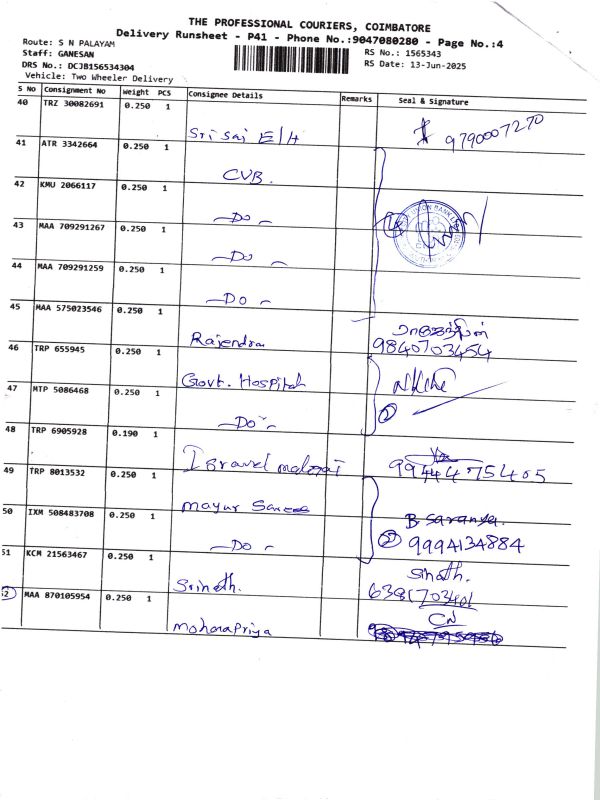 THE PROFESSIONAL COURIERS, COIMBATORE
Delivery Runsheet - P41 - Phone No.:9047080280 - Page No.:4
Route: S N PALAYAM
Staff: GANESAN
RS No.: 1565343
DRS No.: DCJB156534304
RS Date: 13-Jun-2025
Vehicle: Two Wheeler Delivery
S No Consignment No Weight PCS Consignee Details Remarks Seal & Signature
40 TRZ 30082691 0.250 1 Sri Sai E/H 9790007270
41 ATR 3342664 0.250 1 CUB.
42 KMU 2066117 0.250 1 -Do-
UNION BANK
43 MAA 709291267 0.250 1 -Do-
44 MAA 709291259 0.250 1 -Do-
45 MAA 575023546 0.250 1 Rajendra
9840703454
46 TRP 655945 0.250 1 Govt. Hospital
47 MTP 5086468 0.250 1 -Do- 2
48 TRP 6905928 0.190 1
9944475405
49 TRP 8013532 0.250 1 mayur
B Saranya.
50 IXM 508483708 0.250 1 -Do- 2 9994134884
51 KCM 21563467 0.250 1 Srinath.
Sinath.
52 MAA 870105954 0.250 1 mohanapriya
CN